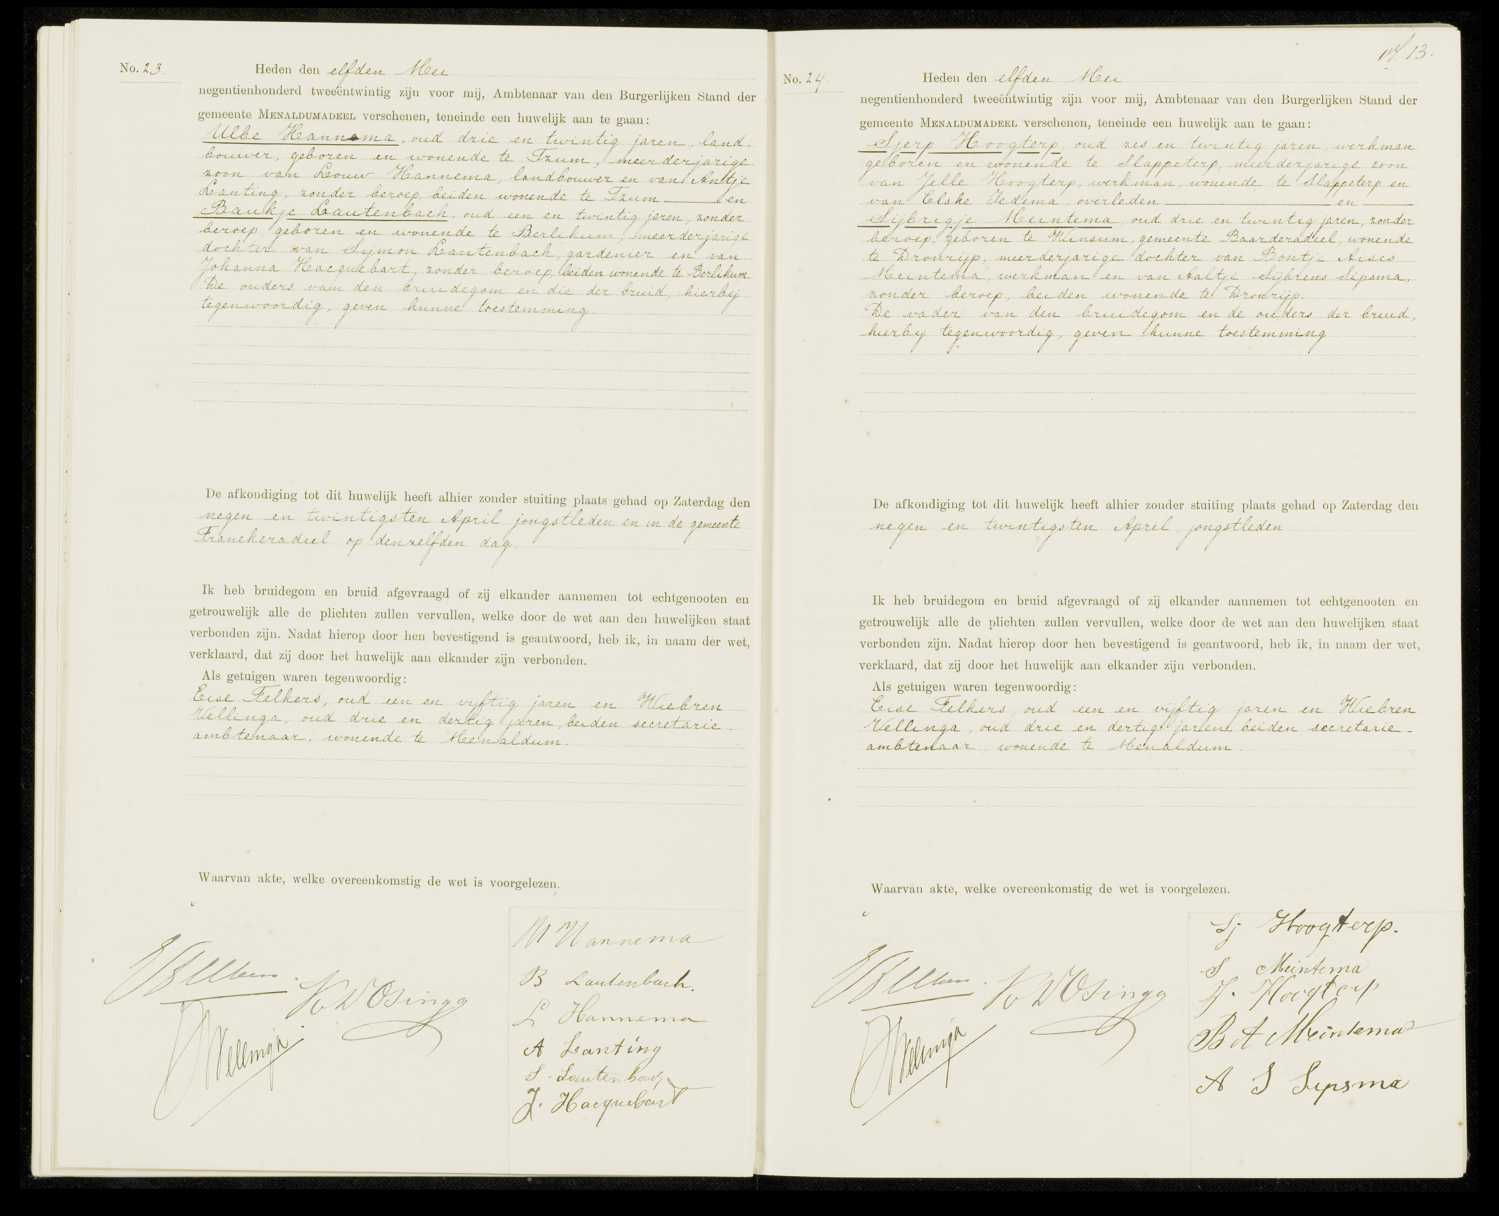 No. 23.
Heden den elfden Mei
negentienhonderd tweeëntwintig zijn voor mij, Ambtenaar van den Burgerlijken Stand der
gemeente MENALDUMADEEL verschenen, teneinde een huwelijk aan te gaan:
Ulbe Hannema, oud drie en twintig jaren, land-
bouwer, geboren en wonende te Tzum, meerderjarige
zoon van Louw Hannema, landbouwer en van Antje
Lanting, zonder beroep, beiden wonende te Tzum en
Baukje Lautenbach, oud een en twintig jaren, zonder
beroep, geboren en wonende te Berlikum, meerderjarige
dochter van Symon Lautenbach, gardenier en van
Johanna Hacquebart, zonder beroep, beiden wonende te Berlikum.
De ouders van den bruidegom en die der bruid, hierbij
tegenwoordig, geven hunne toestemming.
De afkondiging tot dit huwelijk heeft alhier zonder stuiting plaats gehad op Zaterdag den
negen en twintigsten April jongstleden en in de gemeente
Franekeradeel op denzelfden dag.
Ik heb bruidegom en bruid afgevraagd of zij elkander aannemen tot echtgenooten en
getrouwelijk alle de plichten zullen vervullen, welke door de wet aan den huwelijken staat
verbonden zijn. Nadat hierop door hen bevestigend is geantwoord, heb ik, in naam der wet,
verklaard, dat zij door het huwelijk aan elkander zijn verbonden.
Als getuigen waren tegenwoordig:
Eise Felkers, oud een en vijftig jaren en Wiebren
Wellinga, oud drie en dertig jaren, beiden secretarie-
ambtenaar, wonende te Menaldum.
Waarvan akte, welke overeenkomstig de wet is voorgelezen.
Hannema
B Lautenbach.
L Hannema
A Lanting
S. Lautenbach
J. Hacquebart
Wellinga
13.
No. 24
Heden den elfden Mei
negentienhonderd tweeëntwintig zijn voor mij, Ambtenaar van den Burgerlijken Stand der
gemeente MENALDUMADEEL verschenen, teneinde een huwelijk aan te gaan:
Sjerp Hoogterp, oud zes en twintig jaren, werkman
geboren en wonende te Slappeterp, meerderjarige zoon
van Jelle Hoogterp, werkman, wonende te Slappeterp en
van Elske Iedema, overleden en
Sijbrigje Meintema, oud drie en twintig jaren, zonder
beroep, geboren te Winsum, gemeente Baarderadeel, wonende
te Dronrijp, meerderjarige dochter van Bontje Aises
Meintema, werkman en van Aaltje Sijbrens Sipsma,
zonder beroep, beiden wonende te Dronrijp.
De vader van den bruidegom en de ouders der bruid,
hierbij tegenwoordig, geven hunne toestemming
De afkondiging tot dit huwelijk heeft alhier zonder stuiting plaats gehad op Zaterdag den
negen en twintigsten April jongstleden
Ik heb bruidegom en bruid afgevraagd of zij elkander aannemen tot echtgenooten en
getrouwelijk alle de plichten zullen vervullen, welke door de wet aan den huwelijken staat
verbonden zijn. Nadat hierop door hen bevestigend is geantwoord, heb ik, in naam der wet,
verklaard, dat zij door het huwelijk aan elkander zijn verbonden.
Als getuigen waren tegenwoordig:
Eise Felkers, oud een en vijftig jaren en Wiebren
Wellinga, oud drie en dertig jaren, beiden secretarie-
ambtenaar, wonende te Menaldum.
Waarvan akte, welke overeenkomstig de wet is voorgelezen.
Sj Hoogterp.
S Meintema
J. Hoogterp
B A Meintema
A S Sipsma
Wellinga